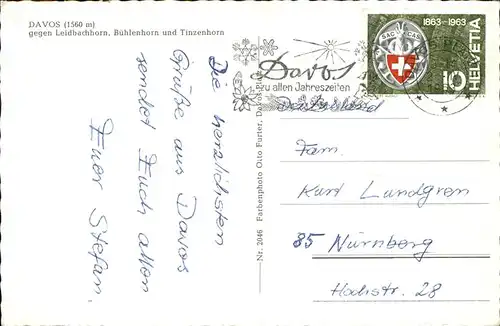 DAVOS (1560 m)
gegen Leidbachhorn, Bühlenhorn und Tinzenhorn
Die herzlichsten
Grüße aus Davos
sendet Euch allen
Euer Stefan.
Nr. 2046 Farbenphoto Otto Furter, Davos
Davos
zu allen Jahreszeiten
1863-1963
SAC CAS
HELVETIA
10
Deutschland
Fam.
Kurt Lundgren
85 Nürnberg
Hochstr. 28